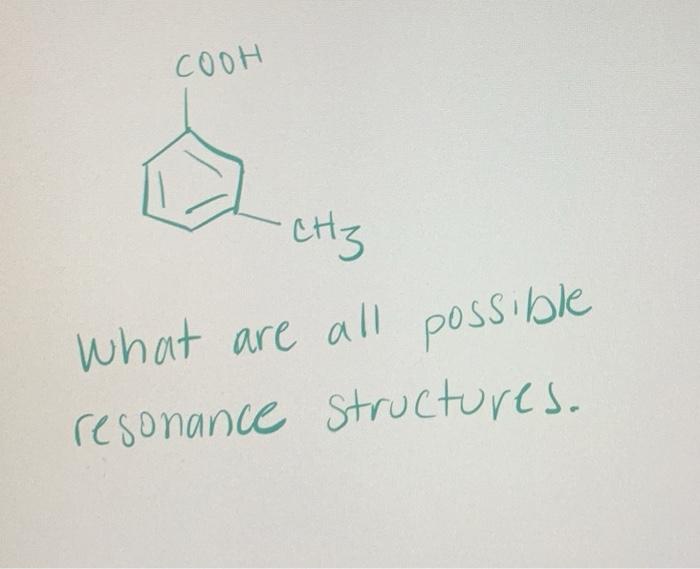 COOH
CH3
What are all possible
resonance structures.